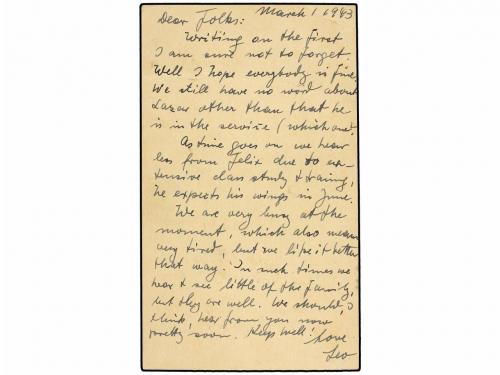 March 1 1943
Dear Folks:
Writing on the first
I am sure not to forget.
Well I hope everybody is fine.
We still have no word about
Lazar other than that he
is in the service (which one?
As time goes on we hear
less from Felix due to ex-
tensive class study & training,
he expects his wings in June.
We are very busy at the
moment, which also means
very tired, but we like it better
that way. In such times we
hear & see little of the family,
but they are well. We should, I
think, hear from you now
pretty soon. Keep well!
Love
Leo